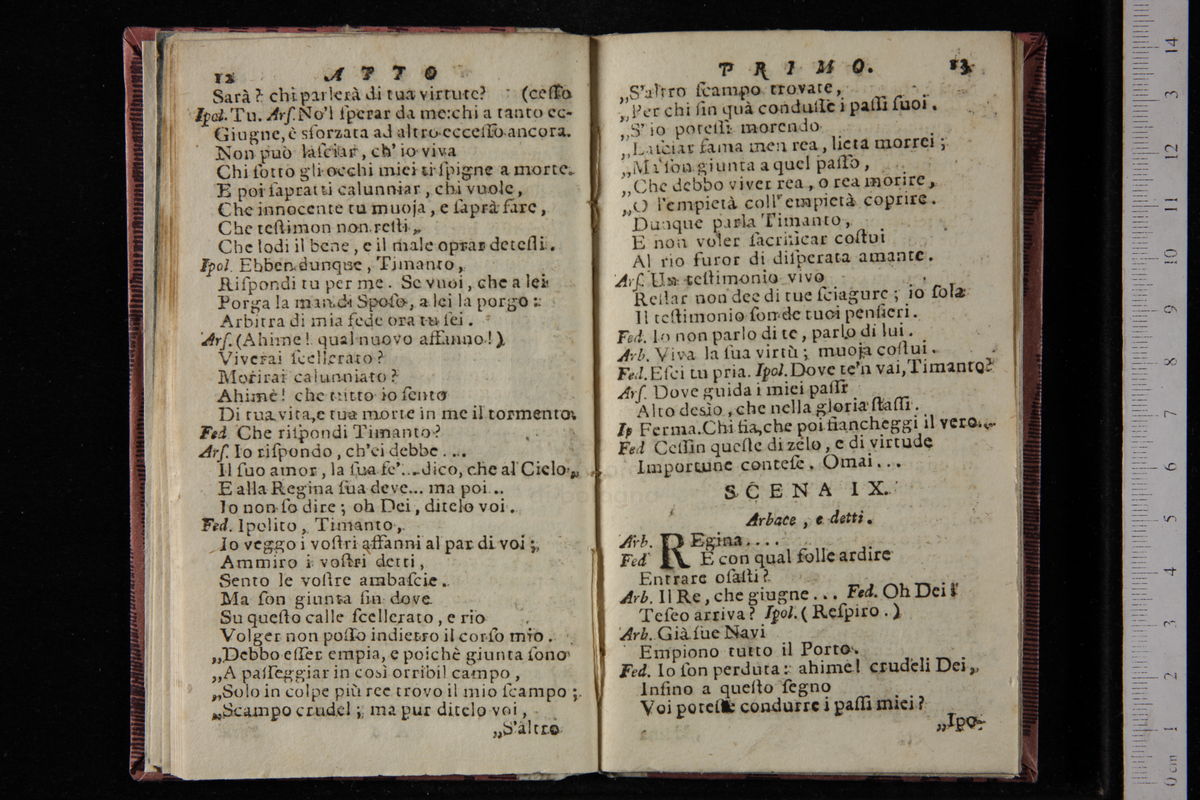 12 ATTO
Sarà? chi parlerà di tua virtute? (ceſſo
Ipol. Tu. Arſ. No'l ſperar da me: chi a tanto ec-
Giugne, è sforzata ad altro ecceſſo ancora.
Non può laſciar, ch' io viva
Chi ſotto gli occhi miei ti ſpigne a morte.
E poi ſapratti calunniar, chi vuole,
Che innocente tu muoja, e ſaprà fare,
Che teſtimon non reſti,
Che lodi il bene, e il male oprar deteſti.
Ipol. Ebben dunque, Timanto,
Riſpondi tu per me. Se vuoi, che a lei
Porga la man di Spoſo, a lei la porgo:
Arbitra di mia fede ora tu ſei.
Arſ. (Ahime! qual nuovo affanno!)
Viverai ſcellerato?
Morirai calunniato?
Ahimè! che tutto io ſento
Di tua vita, e tua morte in me il tormento.
Fed Che riſpondi Timanto?
Arſ. Io riſpondo, ch'ei debbe....
Il ſuo amor, la ſua fe'... dico, che al Cielo,
E alla Regina ſua deve... ma poi...
Io non ſo dire; oh Dei, ditelo voi.
Fed. Ipolito, Timanto,
Io veggo i voſtri affanni al par di voi;
Ammiro i voſtri detti,
Sento le voſtre ambaſcie.
Ma ſon giunta ſin dove
Su queſto calle ſcellerato, e rio
Volger non poſſo indietro il corſo mio.
„Debbo eſſer empia, e poichè giunta ſono
„A paſſeggiar in così orribil campo,
„Solo in colpe più ree trovo il mio ſcampo;
„Scampo crudel; ma pur ditelo voi,
„S'altro
PRIMO. 13
„S'altro ſcampo trovate,
„Per chi ſin quà conduſſe i paſſi ſuoi.
„S' io poteſſi morendo
„Laſciar fama men rea, lieta morrei;
„Ma ſon giunta a quel paſſo,
„Che debbo viver rea, o rea morire,
„O l'empietà coll' empietà coprire.
Dunque parla Timanto,
E non voler ſacrificar coſtui
Al rio furor di diſperata amante.
Arſ. Un teſtimonio vivo
Reſtar non dee di tue ſciagure; io ſola
Il teſtimonio ſon de tuoi penſieri.
Fed. Io non parlo di te, parlo di lui.
Arb. Viva la ſua virtù; muoja coſtui.
Fed. Eſci tu pria. Ipol. Dove te'n vai, Timanto?
Arſ. Dove guida i miei paſſi
Alto desio, che nella gloria ſtaſſi.
Ip Ferma. Chi fia, che poi fiancheggi il vero...
Fed Ceſſin queſte di zelo, e di virtude
Importune conteſe. Omai...
SCENA IX.
Arbace, e detti.
Arb. REgina....
Fed E con qual folle ardire
Entrare oſaſti?
Arb. Il Re, che giugne... Fed. Oh Dei!
Teſeo arriva? Ipol. (Reſpiro.)
Arb. Già ſue Navi
Empiono tutto il Porto.
Fed. Io ſon perduta: ahime! crudeli Dei,
Inſino a queſto ſegno
Voi poteſte condurre i paſſi miei?
„Ipo-